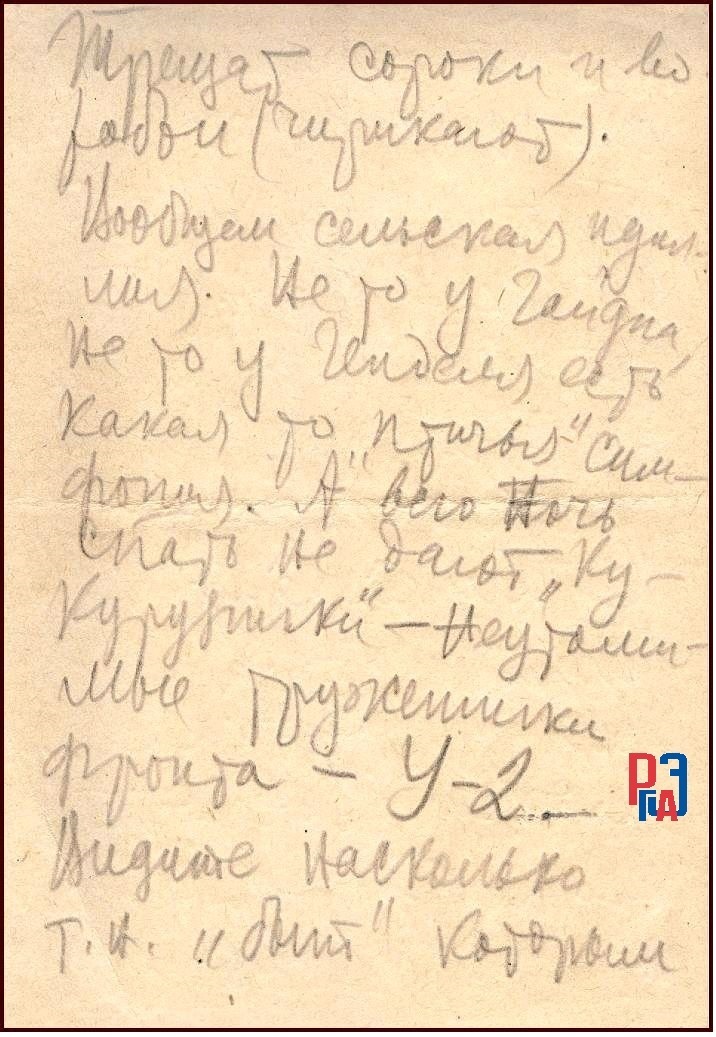 Трещат сороки и во-
робьи (чирикают).
Вообщем сельская идил-
лия. Не то у Гайдна,
не то у Генделя есть
какая то „птичья" сим-
фония. А всю ночь
спать не дают „Ку-
курузники" — неутоми-
мые труженники
фронта — У-2...
РГАЭ
Видите насколько
т.н. „быт" которым